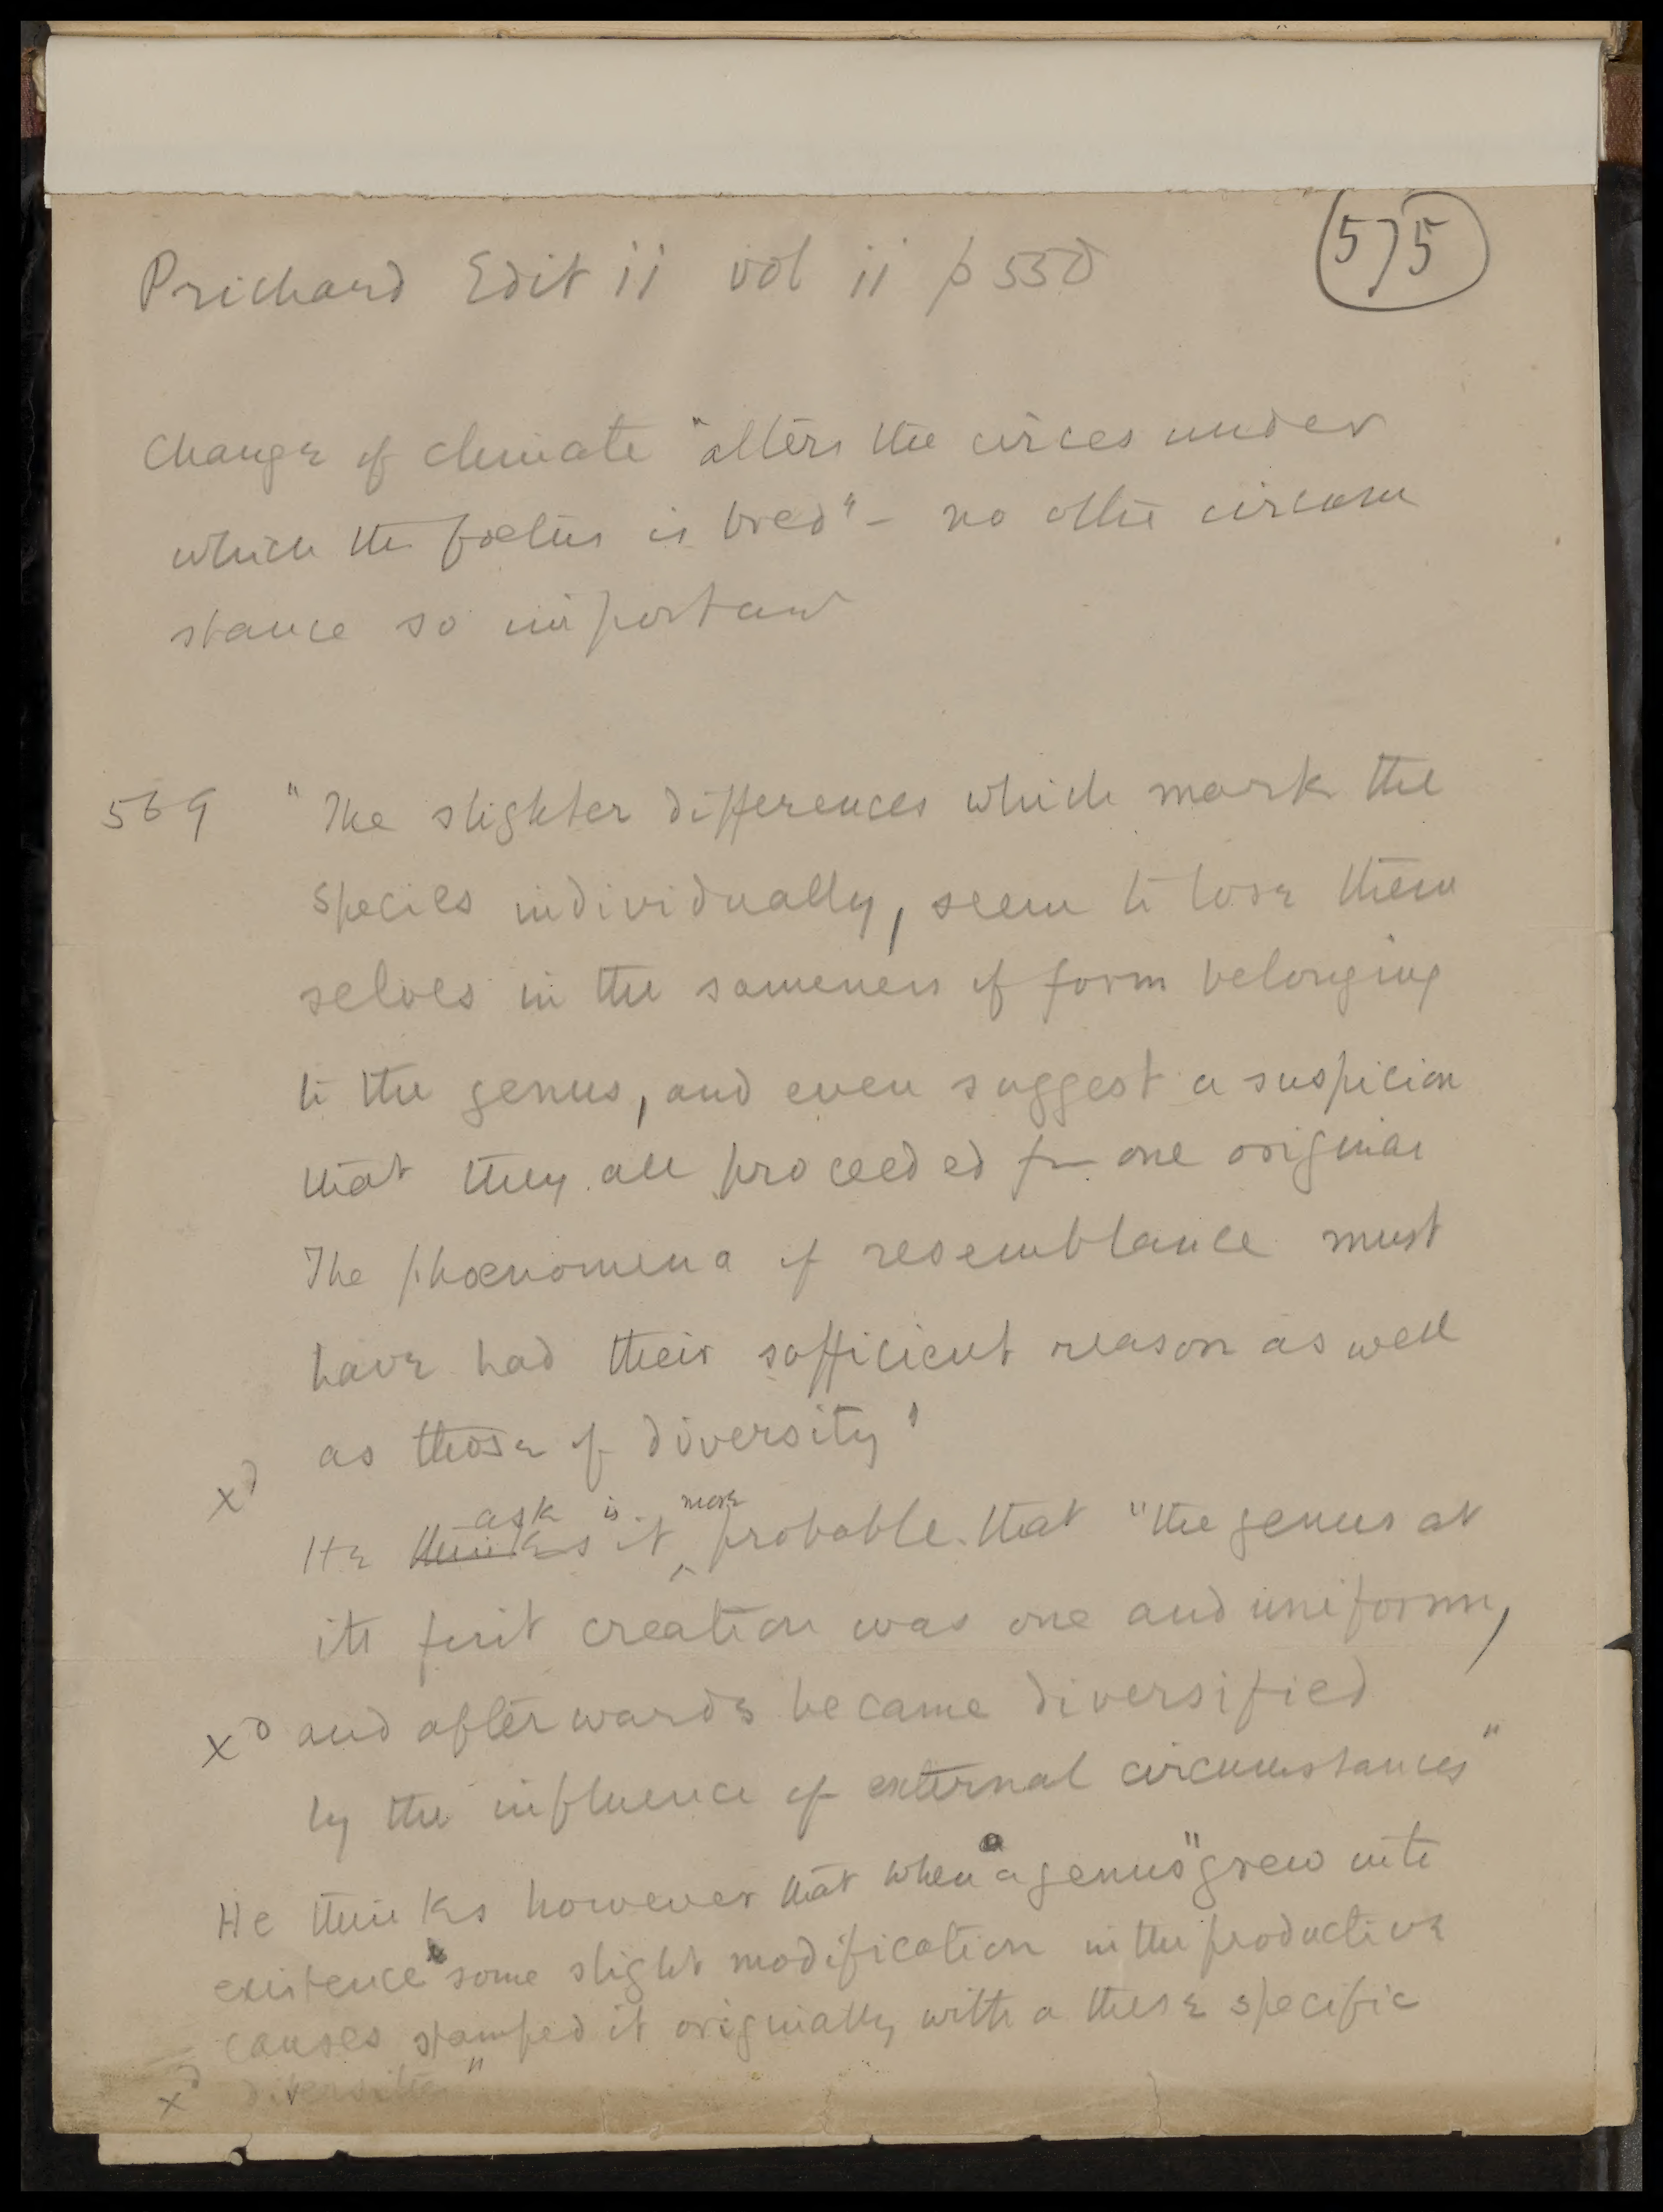 575
Prichard Edit ii vol ii p 550
Change of climate "alters the circes under
which the foetus is bred" – no other circum
stance so important
569 "The slighter differences which mark the
species individually, seem to lose them
selves in the sameness of form belonging
to the genus, and even suggest a suspicion
that they all proceeded fm one original
The phœnomena of resemblance must
have had their sufficient reason as well
as those of diversity"
xd
ask is more
He thinks it ^ probable that "the genus at
its first creation was one and uniform,
xd and afterwards became diversified
by the influence of external circumstances"
He thinks however that when "a genus" grew into
existence "some slight modification in the productive
causes stamped it originally with a these specific
xd diversities"